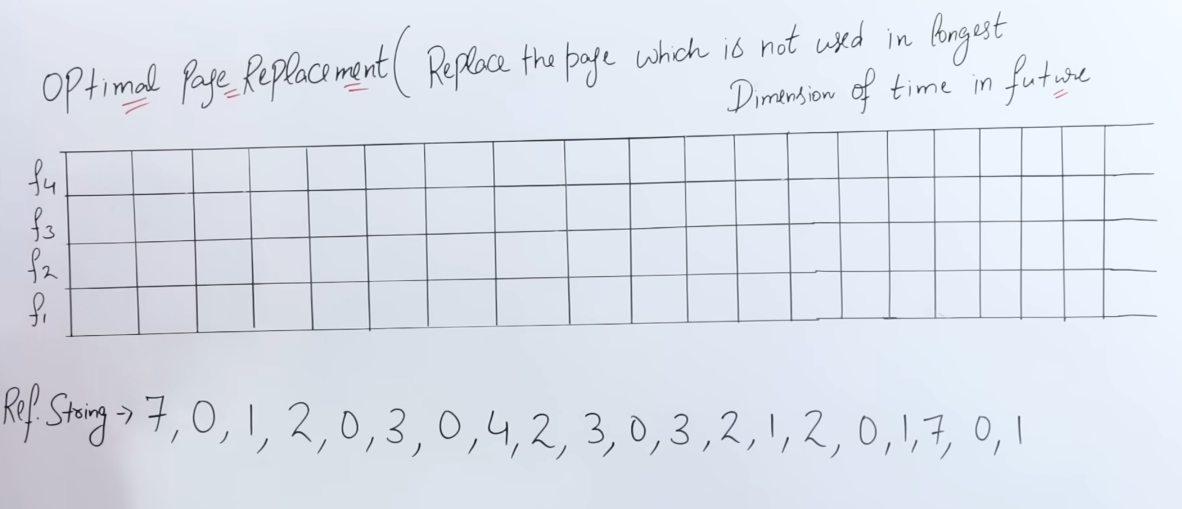 OPtimal Page Replacement ( Replace the page which is not used in longest
Dimension of time in future
f4
f3
f2
f1
Ref. String → 7, 0, 1, 2, 0, 3, 0, 4, 2, 3, 0, 3, 2, 1, 2, 0, 1, 7, 0, 1